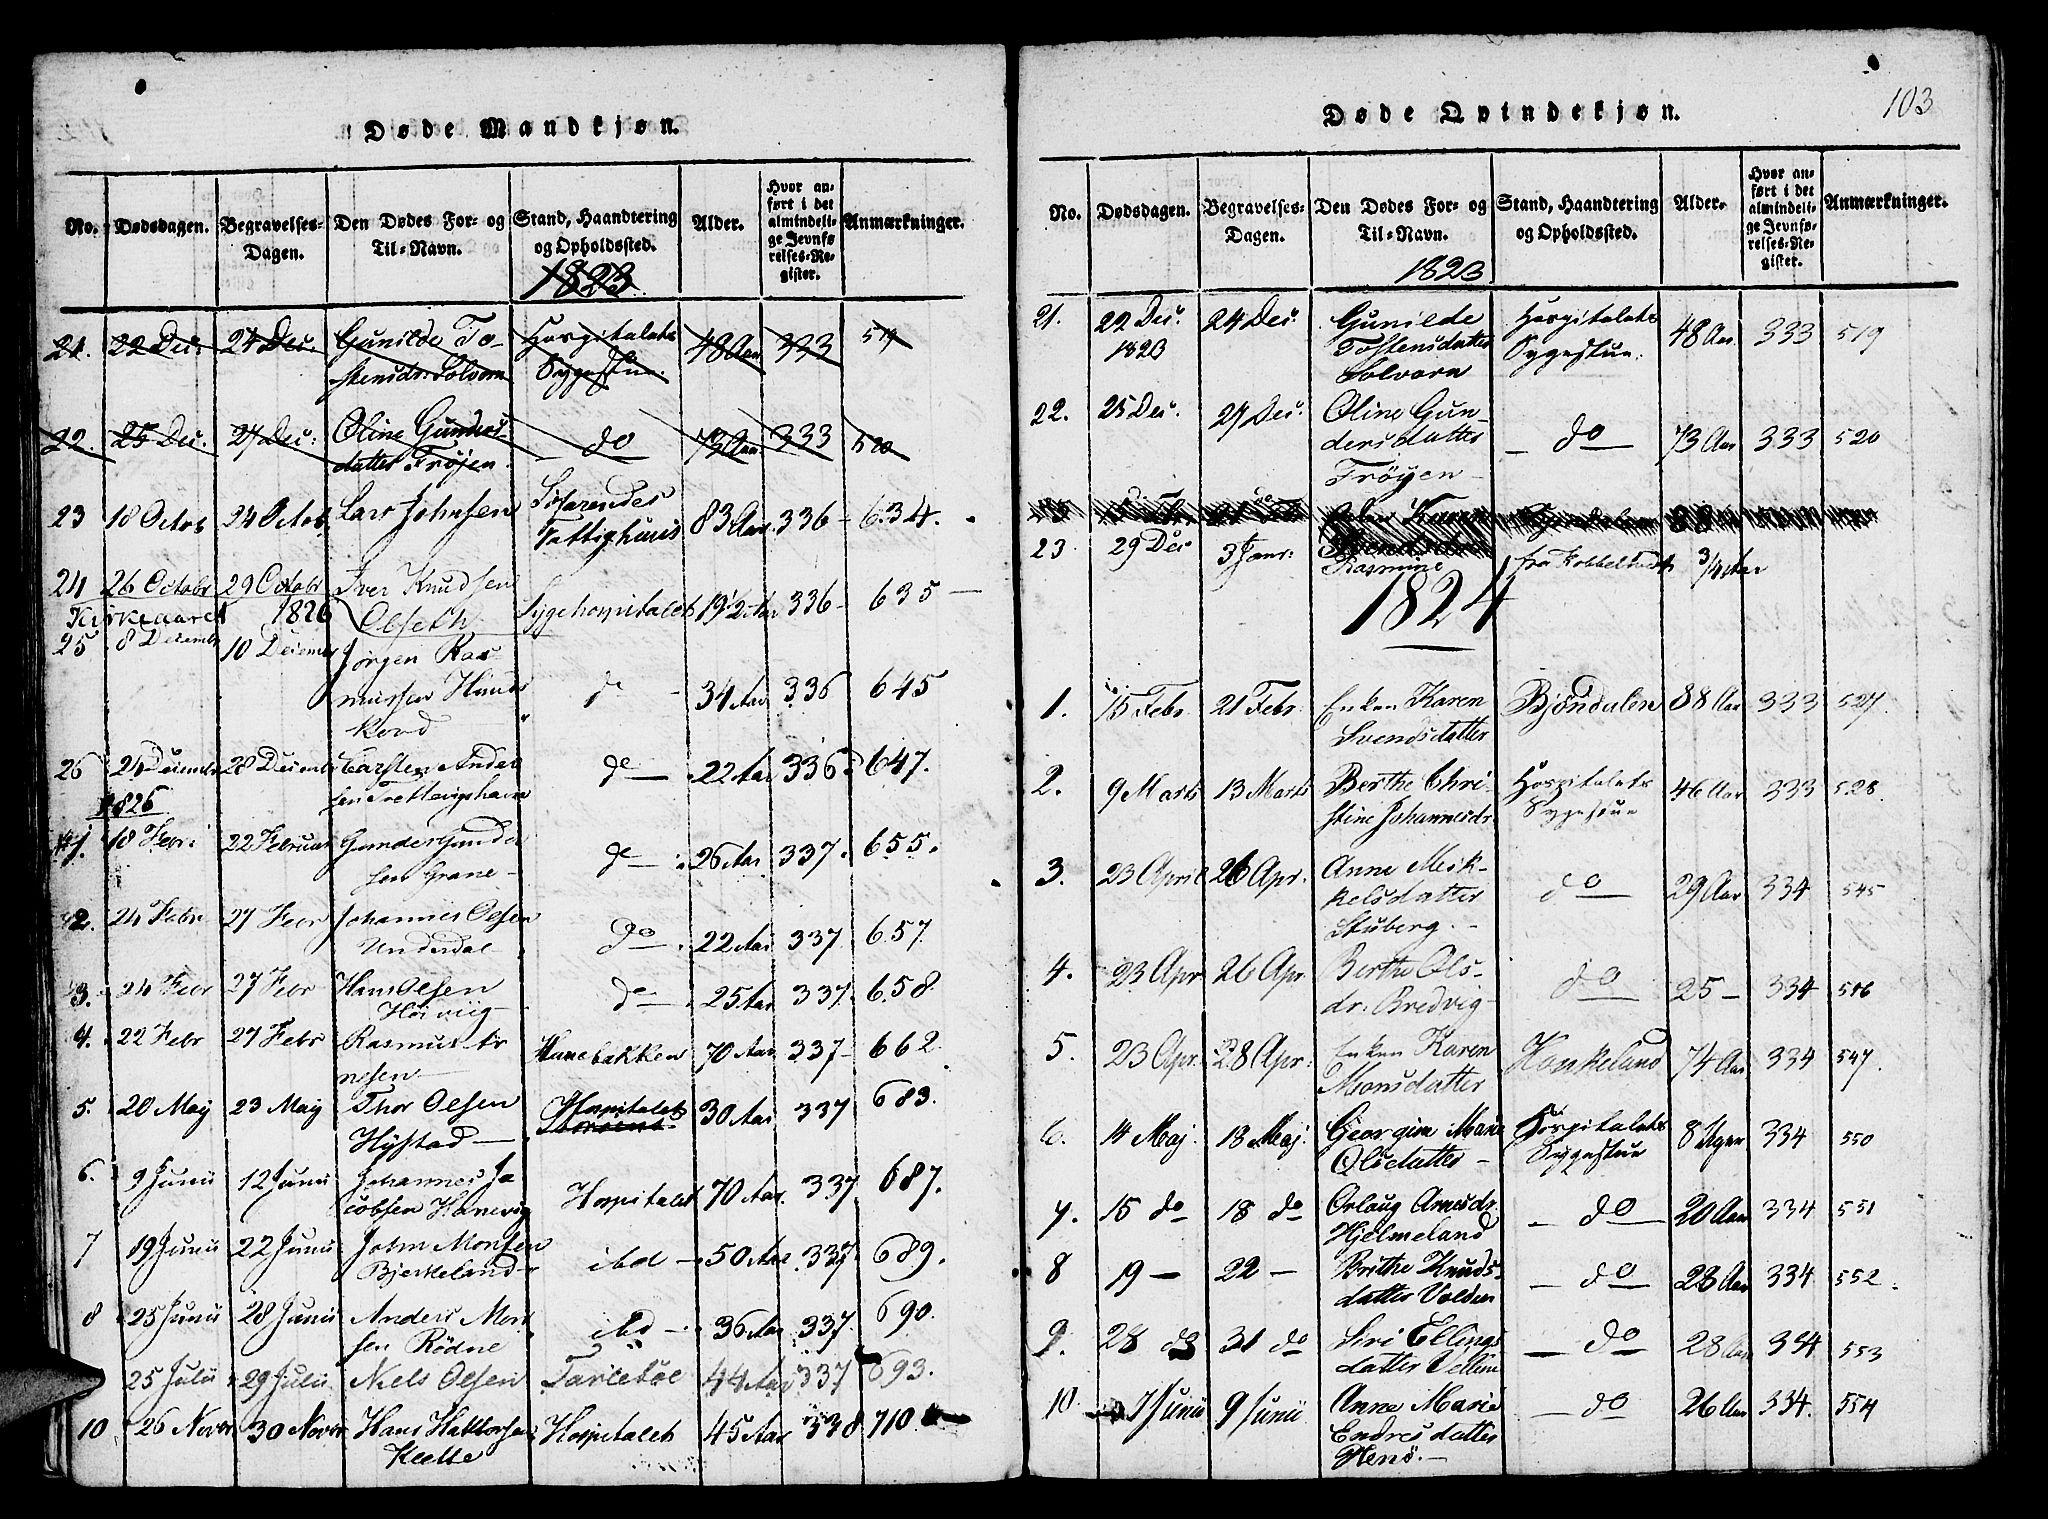 Døde Mandkjøn.
No. Dødsdagen. Begravelses-Dagen. Den Dødes For- og Til-Navn. Stand, Haandtering og Opholdssted. Alder. Hvor anført i det almindelige Jevnførelses-Register. Anmærkninger.
1823
21. 22 Dec: 24 Dec: Gunilde To- Hospitalets 48 Aar 333 519
stensdr: Solvorn Sygestue.
22. 25 Dec. 27 Dec: Oline Gunders- do 73 Aar 333 520
datter Frøjen.
23 18 Octob 24 Octob. Lars Johnsen 83 Aar. 336 - 634.
Fattighuus
24 26 Octobr 29 Octobr Iver Knudsen Sygehospitalet 19 1/2 Aar 336 - 635 -
Kirkegaaret 1826 Olseth
25 8 Decembr 10 Decembr Jørgen Ras- d - 34 Aar 336 645
mussen Hunds
kord
26 24 Decembr 28 Decembr Carsten Ander do 22 Aar 336. 647.
sen
1826
1. 18 Febr: 22 Februar Gunder Gunder do 26 Aar 337. 655.
sen Grane -
2. 24 Febr 27 Febr Johannes Olsen do 22 Aar 337. 657.
Underdal
3. 24 Febr 27 Febr Hans Olsen do 25 Aar 337. 658.
Høiviig
4. 22 Febr 27 Febr Rasmus Ar Hanebakken 70 Aar 337 - 662.
nesen
5. 20 Maij 23 Maij Thor Olsen Hospitalet 30 Aar 337 683.
Hystad
6. 9 Junii 12 Junii Johannes Ja Hospitalet 70 Aar. 337. 687.
cobsen Hanevig
7 19 Junii 22 Junii John Monsen ibd - 50 Aar 337. 689.
Bjerkeland
8 25 Junii 28 Junii Anders Mon ibd - 36 Aar 337. 690.
sen Rødne
25 Julii 29 Julii Niels Olsen 44 Aar 337 693.
10 26 Novbr 30 Novbr Hans Halvorsen Hospitalet 45 Aar 338 710
103
Døde Qvindekjøn.
No. Dødsdagen. Begravelses-Dagen. Den Dødes For- og Til-Navn. Stand, Haandtering og Opholdssted. Alder. Hvor anført i det almindelige Jevnførelses-Register. Anmærkninger.
1823
21. 22 Dec: 24 Dec: Gunilde Hospitalets 48 Aar. 333 519
1823 Tostensdatter Sygestue.
Solvorn
22. 25 Dec. 27 Dec: Oline Gun- do 73 Aar 333 520
dersdatter
Frøyen
23 29 Dec 3 Janr: Rasmine fra Kobbelstedt 3/4 Aar
1824
1. 15 Febr. 21 Febr. Enken Karen Bjøndalen 88 Aar 333 527.
Svendsdatter
2. 9 Marts 13 Marts Berthe Chri- Hospitalets 46 Aar 333 528.
stine Johannesdr. Sygestue
3. 23 April 26 Apr. Anne Mik- do 29 Aar 334 545
kelsdatter
Stuberg.
4. 23 Apr 26 Apr. Berthe Ols- do 25 - 334 546
dr. Bredvig
5. 23 Apr. 28 Apr: Enken Karen Haukeland 74 Aar 334 547.
Monsdatter
6. 14 Maj. 18 Maj. Georgine Marie Hospitalets 8 Uger 334 550
Olsdatter - Sygestue
7. 15 do 18 do Orlaug Arnesdr. do 20 Aar 334 551
Hjelmeland
8 19 - 22 - Brithe Knuds- do 28 Aar 334 552.
datter Volden
9. 28 do 31 do Siri Ellings do 28 Aar 334 553
datter Vellum
10. 7 Junii 9 Junii Anne Marie do 26 Aar 334. 554
Endresdatter
Henø.